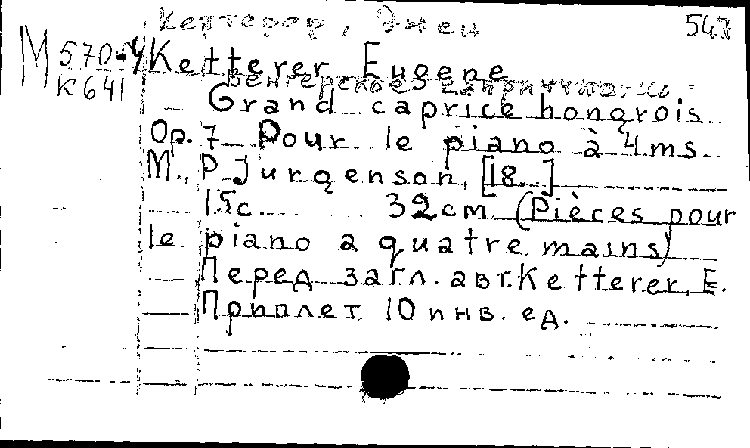 Кеттерер, Джен 543
М 570-4 Ketterer Eugene
К 641 Венгерское
Grand caprice hongrois
Op. 7 Pour le piano à 4 ms
М., P. Jurgenson, [18..]
15c. 32cm (Pièces pour
le piano a quatre mains)
Перед загл. авт. Ketterer, E.
Приплет. 10 инв. ед.